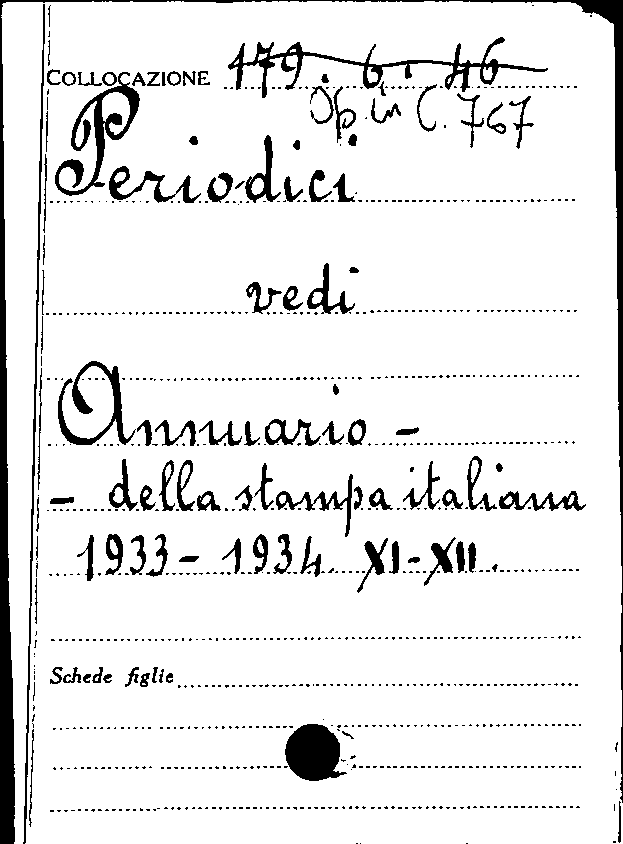 COLLOCAZIONE 179.6.46
Op. in C. 767
Periodici
vedi
Annuario -
- della stampa italiana
1933 - 1934. XI-XII.
Schede figlie